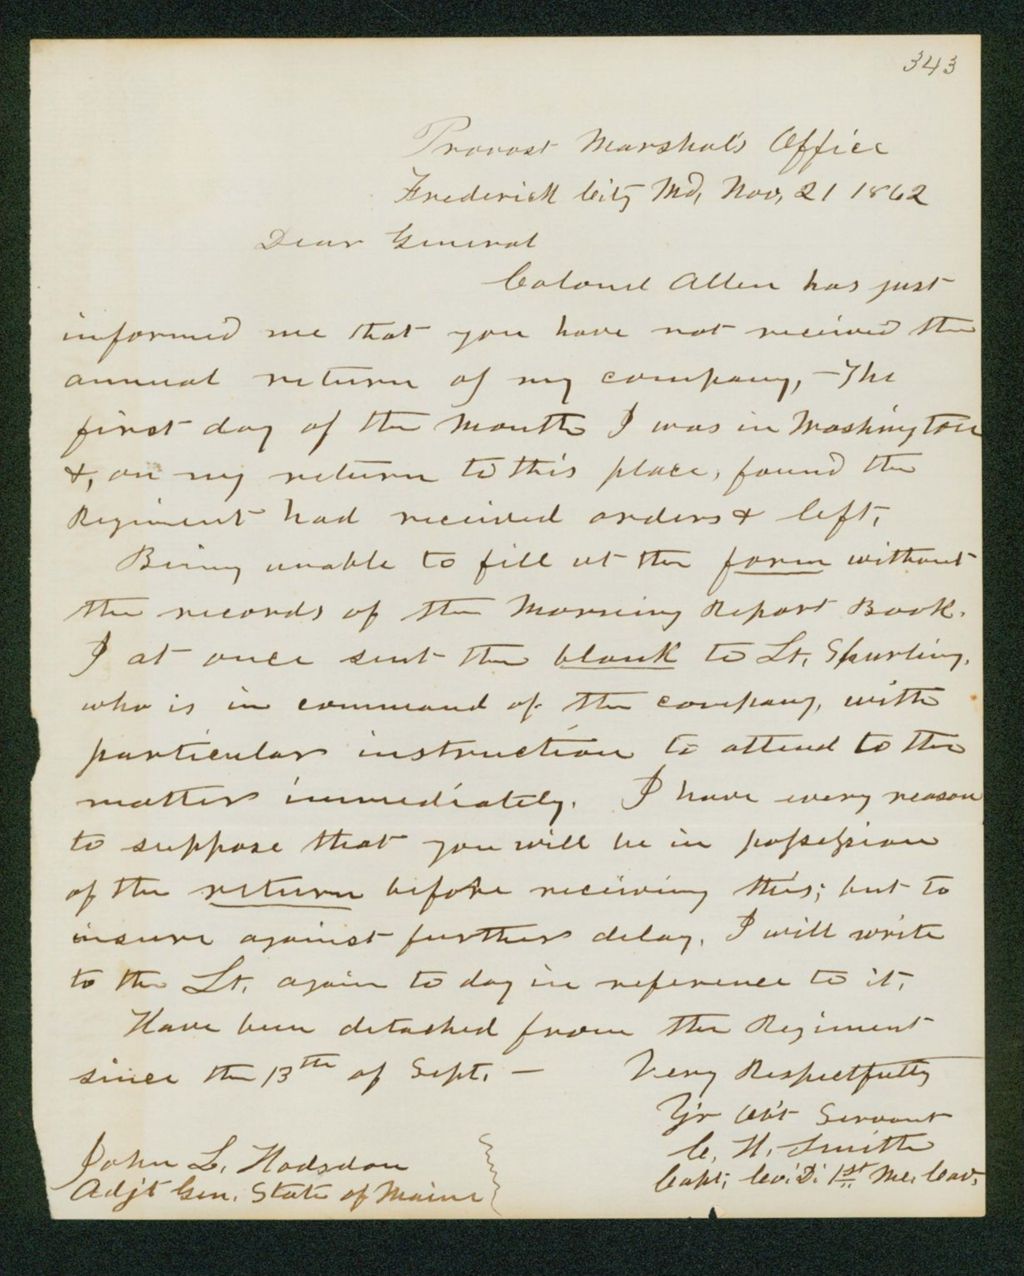 343
Provost Marshal's Office
Frederick City Md, Nov, 21 1862
Dear General
Colonel Allen has just
informed me that you have not received the
annual return of my company, - The
first day of the Month I was in Washington
&, on my return to this place, found the
Regiment had received orders & left,
Being unable to fill ut the form without
the records of the Morning Report Book.
I at once sent the blank to Lt, Spurling,
who is in command of the company, with
particular instruction to attend to the
matter immediately. I have every reason
to suppose that you will be in possession
of the return before receiving this; but to
insure against further delay, I will write
to the Lt, again to day in reference to it,
Have been detached from the Regiment
since the 13th of Sept. - Very Respectfully
Yr Obt Servant
C, H, Smith
Capt, Co. D. 1st Me, Cav,
John L. Hodsdon
Adjt Gen, State of Maine